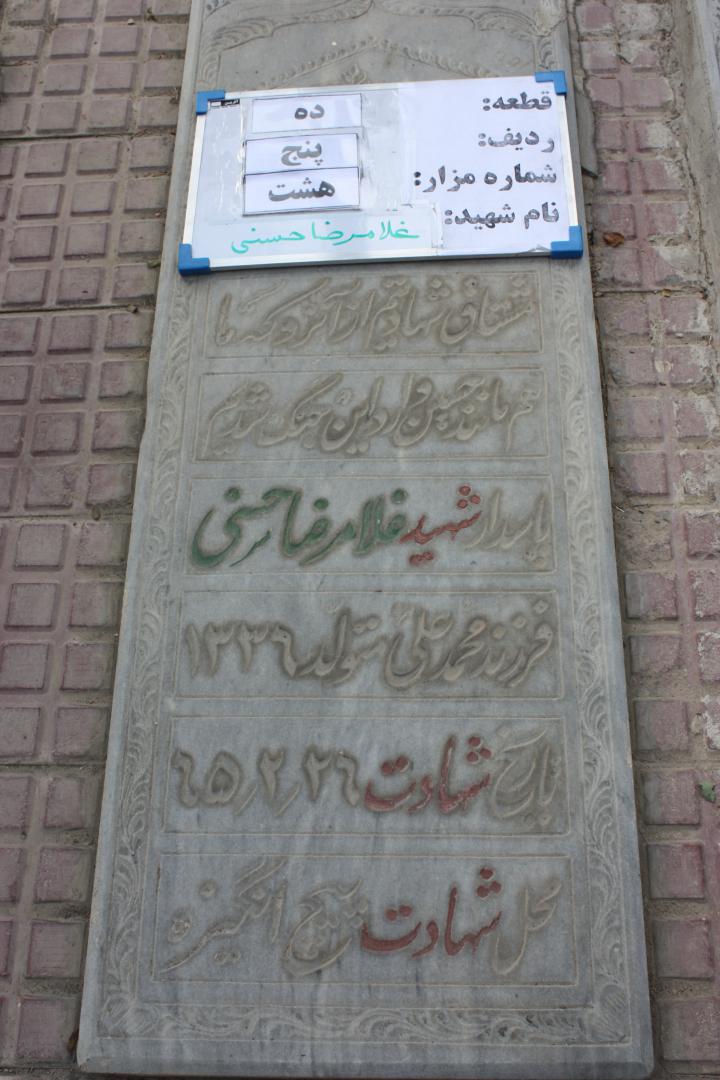 قطعه: ده
ردیف: پنج
شماره مزار: هشت
نام شهید: غلامرضا حسنی
مشتاق شهادتم از آنرو که ما
هم مانند حسین وارد این جنگ شدیم
پاسدار شهید غلامرضا حسنی
فرزند محمد علی متولد ۱۳۳۹
تاریخ شهادت ۲۶٫۲٫۶۵
محل شهادت پیچ انگیزه